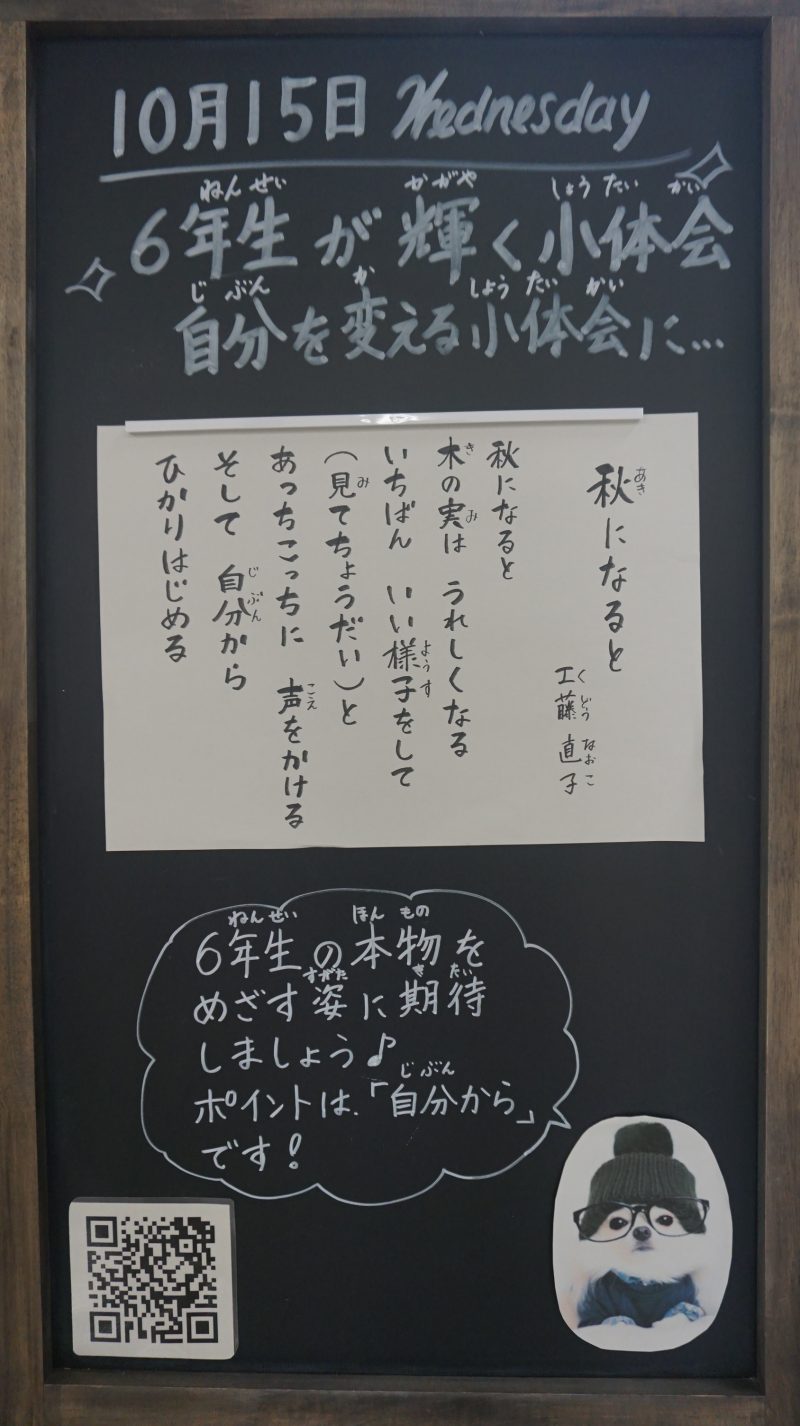 10月15日 Wednesday
ねんせい かがや しょうたいかい
6年生が輝く小体会
じぶん か しょうたいかい
自分を変える小体会に…
秋になると
あき
工藤 直子
くどう なおこ
秋になると
木の実は うれしくなる
き み
いちばん いい様子をして
ようす
(見てちょうだい)と
み
あっちこっちに 声をかける
こえ
そして 自分から
じぶん
ひかりはじめる
ねんせい ほんもの
6年生の本物を
すがた きたい
めざす姿に期待
しましょう♪
じぶん
ポイントは、「自分から」
です!